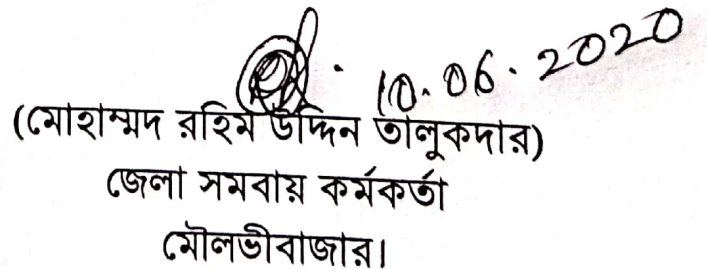 10.06.2020
(মোহাম্মদ রহিম উদ্দিন তালুকদার)
জেলা সমবায় কর্মকর্তা
মৌলভীবাজার।